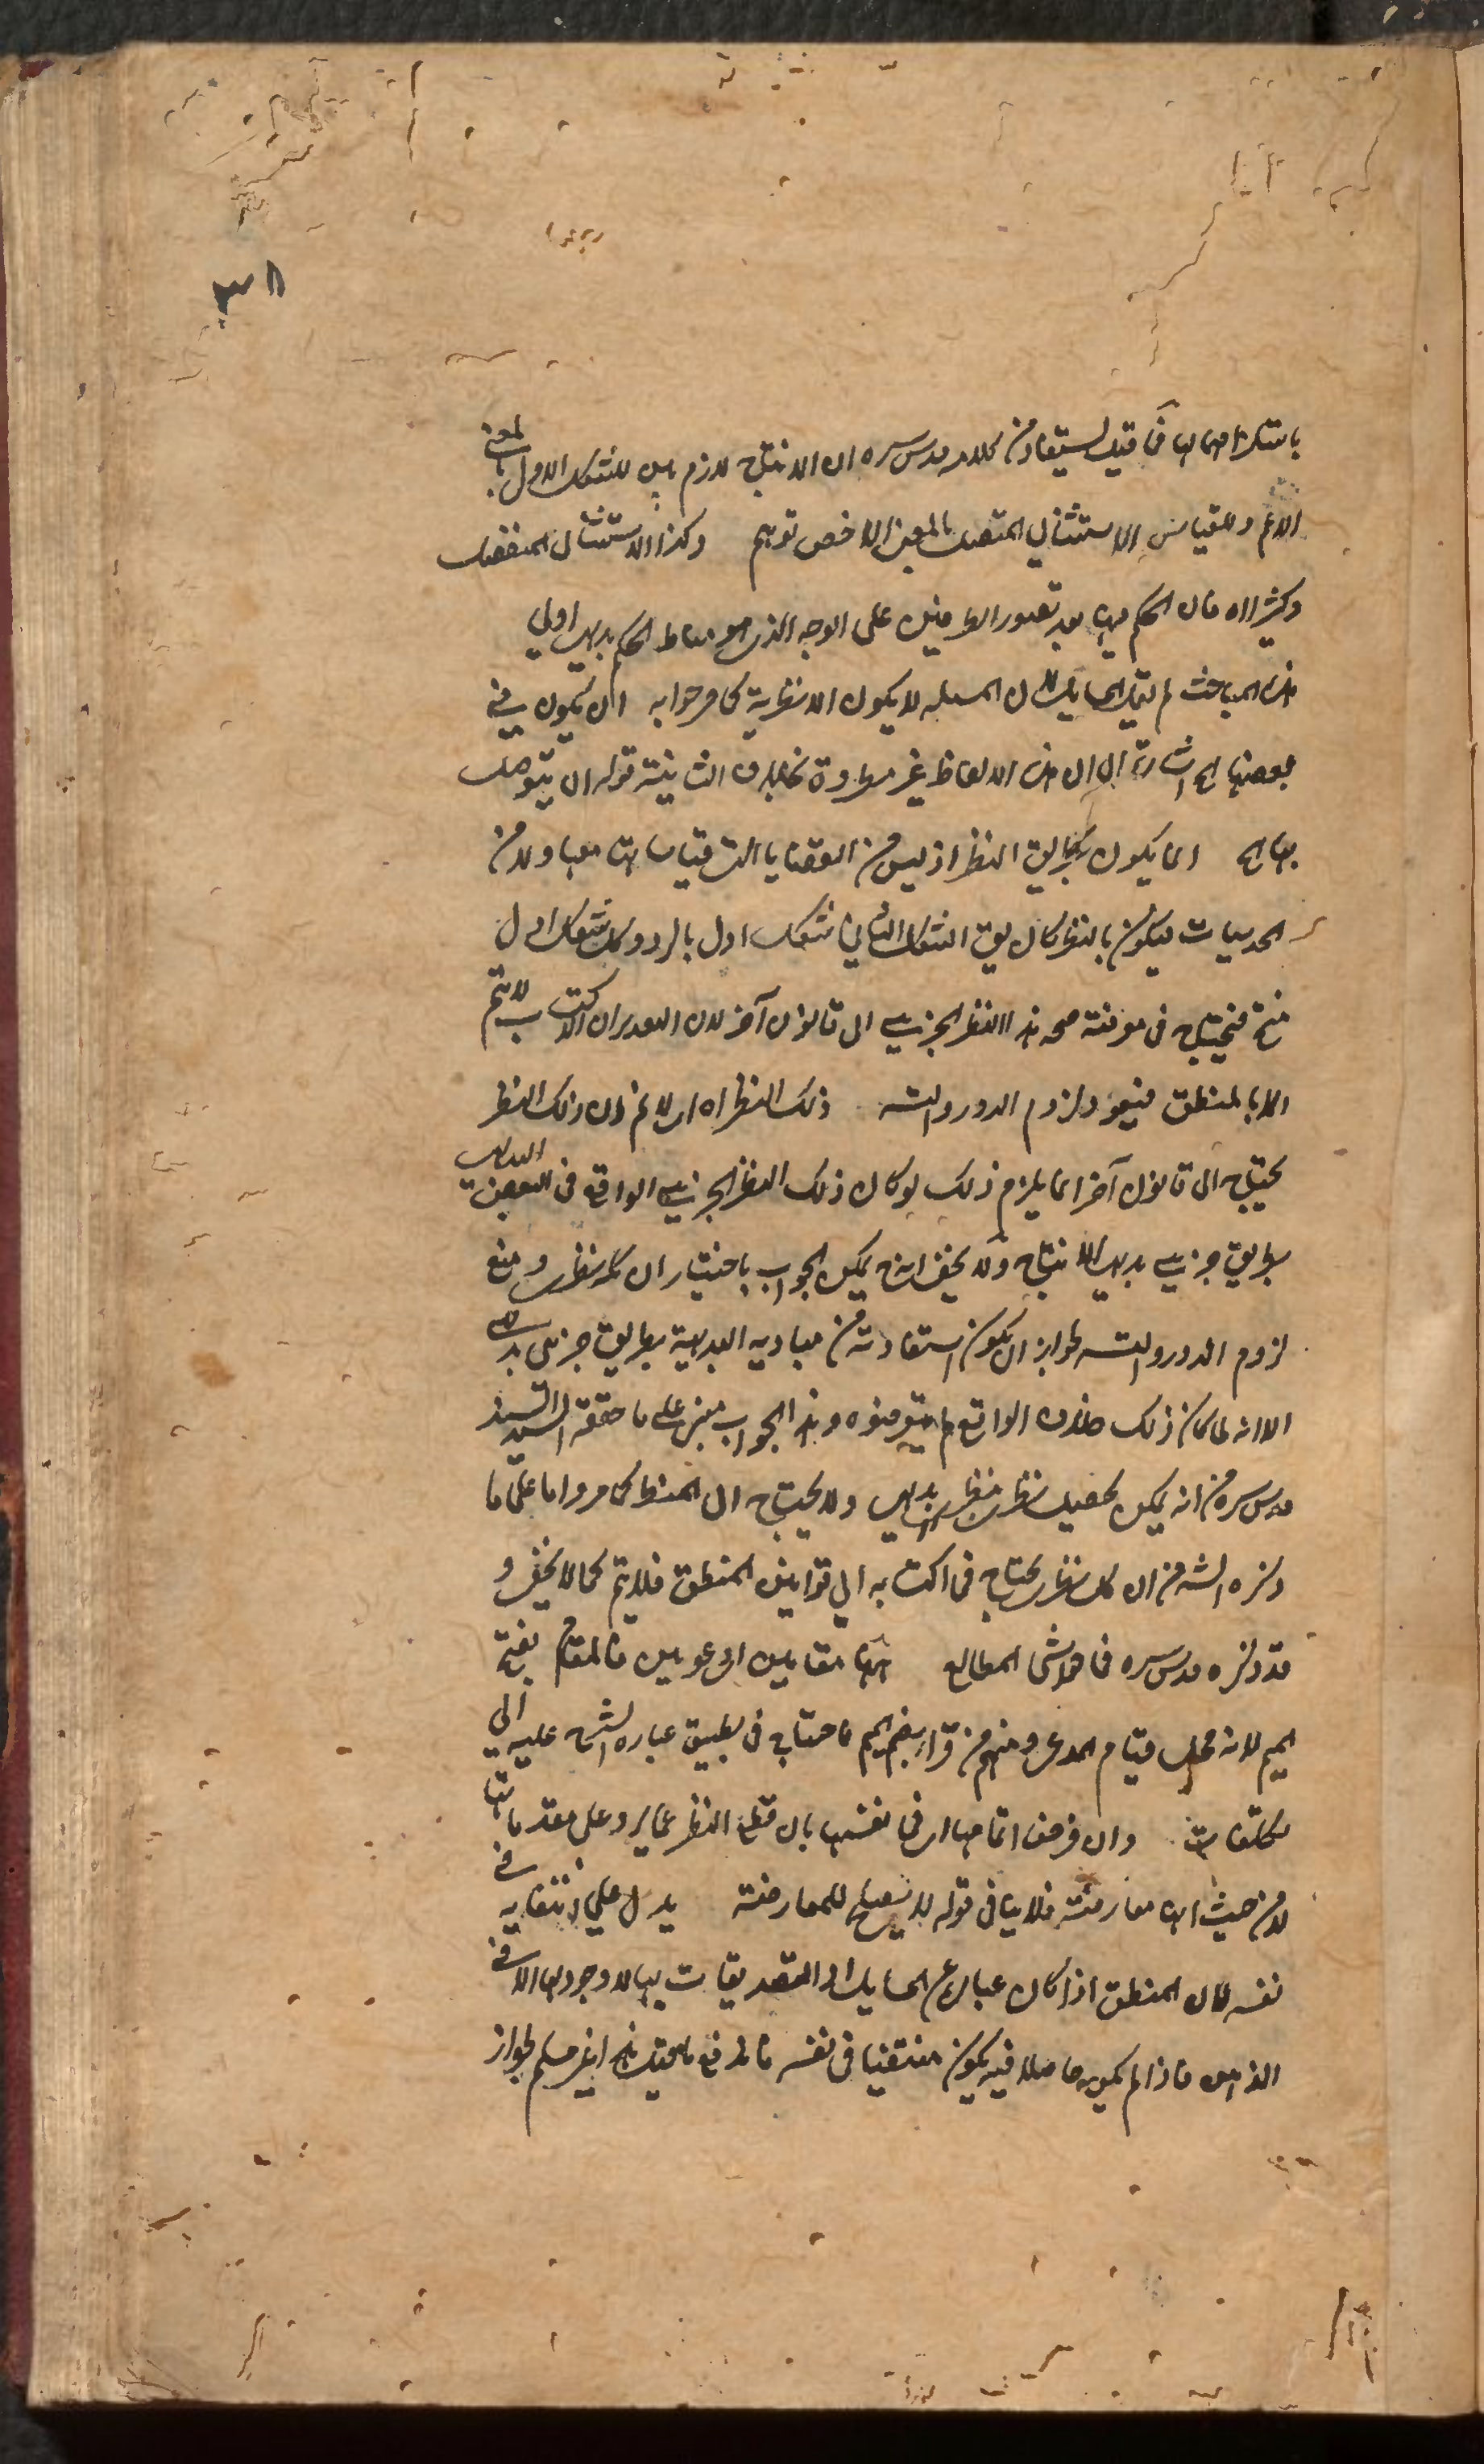 ٣٨
باستلزامهما لها فما قيل يستفاد من كلامه قدس سره ان الانتاج لازم بين للشكل الاول بالمعنى
الاعم وللقياس الاستثنائي المتصل بالمعنى الاخص توهم وكذا الاستثنائي المنفصل
وكثيرا اه فان الحكم فيها بعد تصور الطرفين على الوجه الذي هو مناط الحكم بديهي اولي
هذه المباحث لم يقل المسايل لان المسئلة لا يكون الا نظرية كما مر جوابه ان يكون في
بعضها اه اشارة الى ان هذه الالفاظ غير مطردة بخلاف الثانية قوله ان يتوصل
بها اه انما يكون بطريق النظر اذ ليس من القضايا التي قياساتها معها ولا من
الحدسيات فيكون بالنظر كان يق الشكل الثاني شكل اول بالرد وكل شكل اول
منتج فيحتاج في معرفة صحة هذا النظر الجزيي الى قانون آخر لان التقدير ان الاكتساب لا يتم
الا بالمنطق فيعود لزوم الدور والتسه ذلك النظر اه اي لا نم ان ذلك النظر
يحتاج الى قانون آخر انما يلزم ذلك لو كان ذلك النظر الجزيي الواقع في البعض البديهي
بطريق جزيي بديهي الانتاج ولا يخفى انه ح يمكن الجواب باختيار ان كله نظري ومنع
لزوم الدور والتسه لجواز ان يكون استفادته من مباديه البديهية بطريق جزئي بديهي
الا انه لما كان ذلك خلاف الواقع لم يتعرضوه وهذا الجواب مبني على ما حققه السيد السند
قدس سره من انه يمكن تحصيل نظري بنظر بديهي ولا يحتاج الى المنطق كما مر واما على ما
ذكره الشه من ان كل نظري يحتاج في اكتسابه الى قوانين المنطق فلا يتم كما لا يخفى و
قد ذكره قدس سره في حواشي المطالع ههنا مقامين اي دعويين فالمقام بفتح
الميم لانه محل قيام المدعي ومنهم من قرأ بضم الميم فاحتاج في تطبيق عبارة الشه عليه الى
تكلفات وان فرض اتمامها اي في نفسها بان قطع النظر عما يرد على مقدماتها
لا من حيث انها معارضة فلا ينافي قوله لا يصلح للمعارضة يدل على انتفائه في
نفسه لان المنطق اذا كان عبارة عن المسايل او التصديقات بها لا وجود لها الا في
الذهن فاذا لم يكن حاصلا فيه يكون منتفيا في نفسه فاندفع ما قيل هذا غير مسلم لجواز